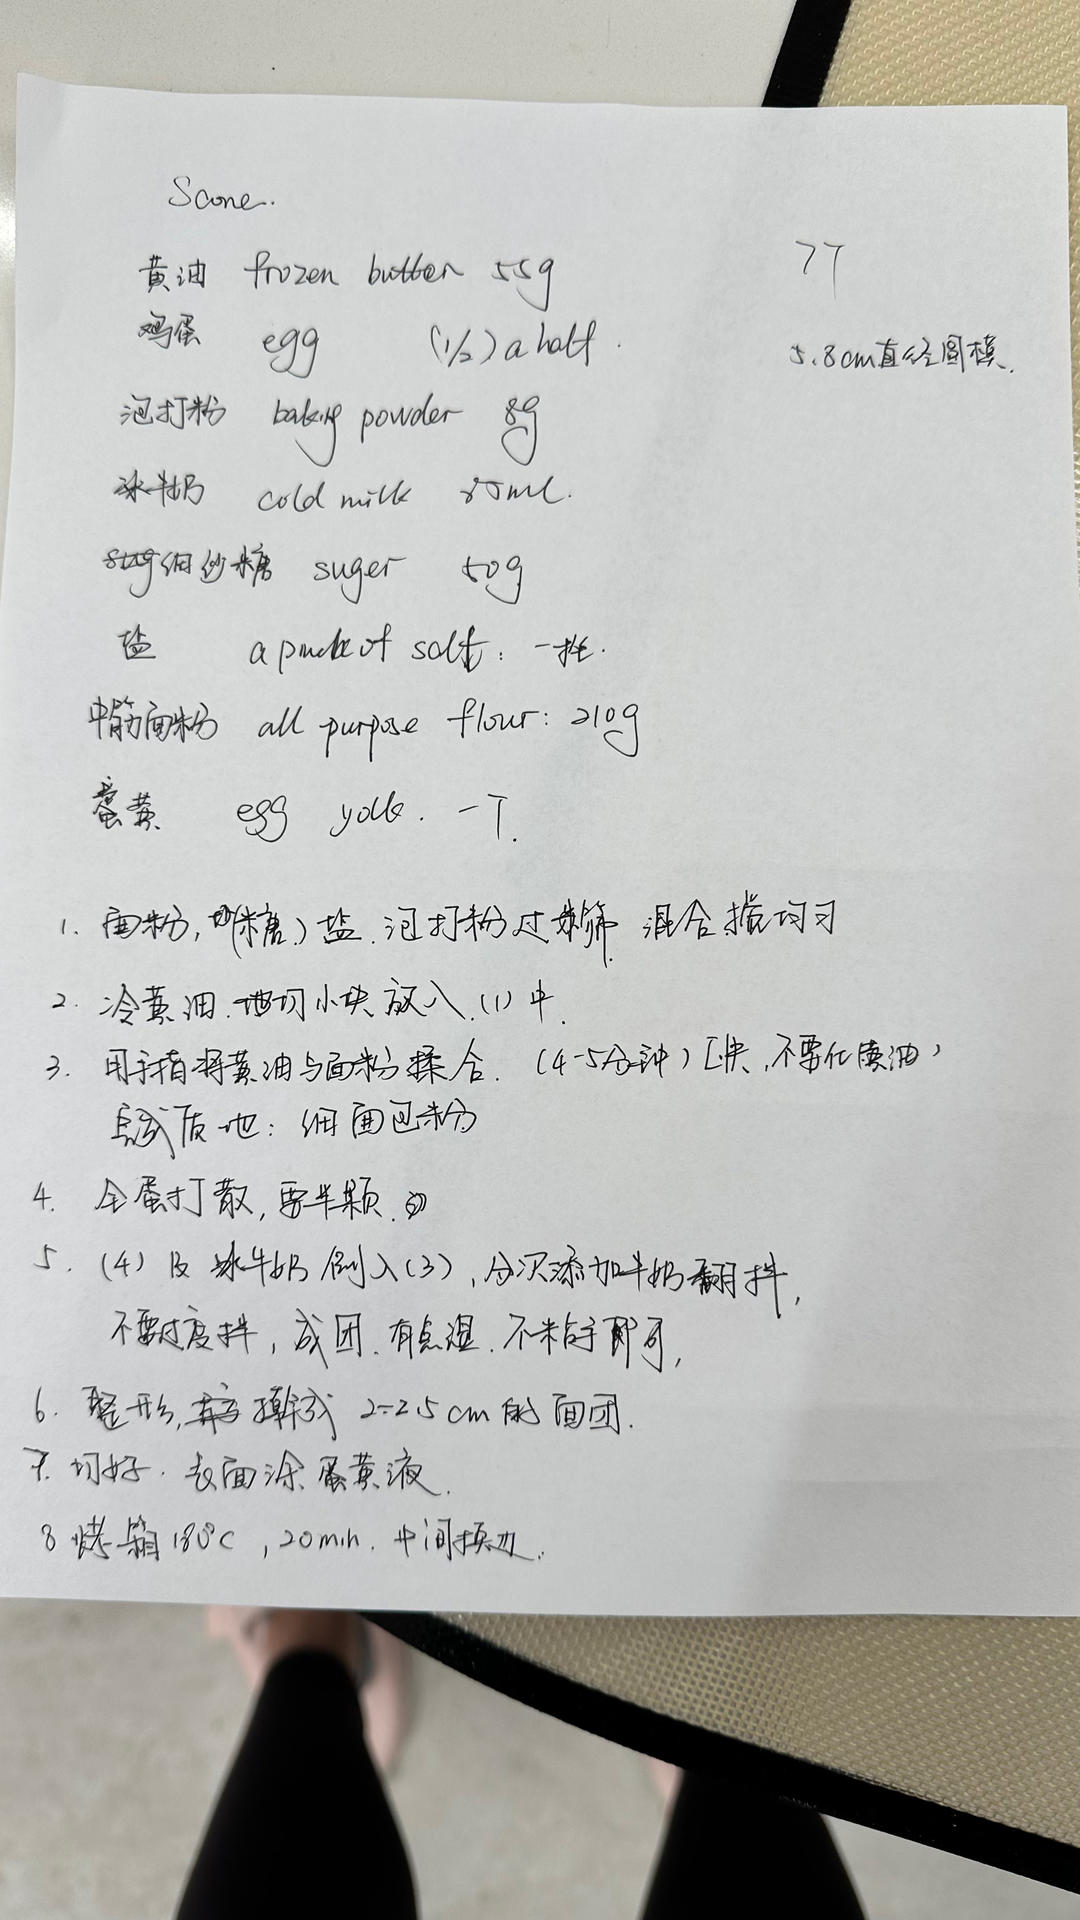 Scone.
黄油 frozen butter 55g
7个
鸡蛋 egg (1/2) a half.
5.8cm直径圆模.
泡打粉 baking powder 8g
冰牛奶 cold milk 85ml.
细砂糖 suger 50g
盐 a pinch of salt: 一撮.
中筋面粉 all purpose flour: 210g
蛋黄 egg yolk. 一个.
1. 面粉, (糖) 盐.泡打粉过筛 混合搅均匀
2. 冷黄油.切小块放入(1)中.
3. 用手指将黄油与面粉揉合. (4-5分钟) [快,不要化黄油)
质地: 细面包粉
4. 全蛋打散,要半颗.
5. (4)及冰牛奶倒入(3),分次添加牛奶翻拌,
不要过度拌,成团.有点湿.不粘手即可,
6. 整形,擀成 2-2.5cm的面团.
7. 切好.表面涂蛋黄液.
8 烤箱180°C,20min.中间换边.